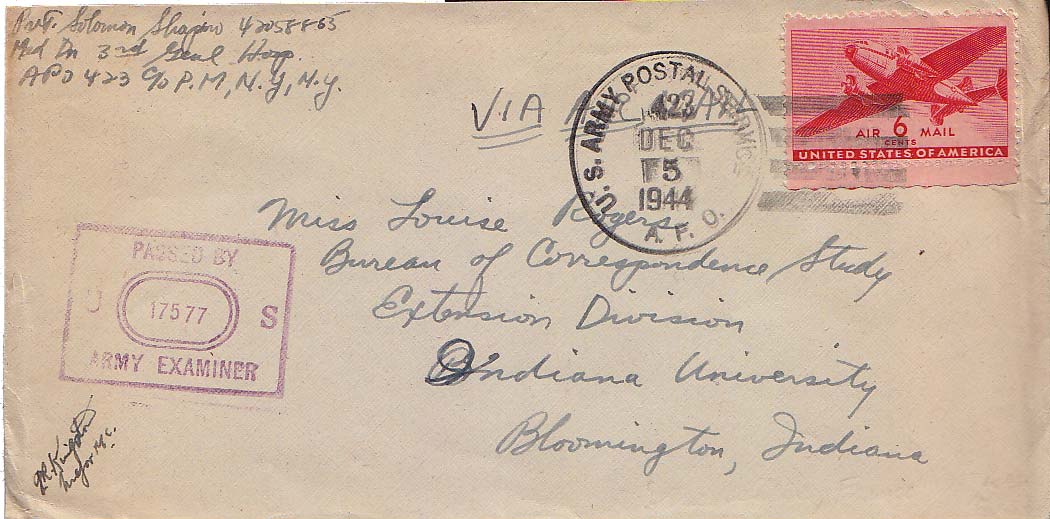 Pvt. Solomon Shapiro 42058865
Med Dn 3rd Genl Hosp.
APO 423 c/o P.M, N.Y, N.Y.
VIA
U.S. ARMY POSTAL SERVICE
423
DEC
5
1944
A. P. O.
AIR 6 MAIL
CENTS
UNITED STATES OF AMERICA
Miss Louise Rogers
Bureau of Correspondence Study
Extension Division
Indiana University
Bloomington, Indiana
PASSED BY
U 17577 S
ARMY EXAMINER
Major M.C.